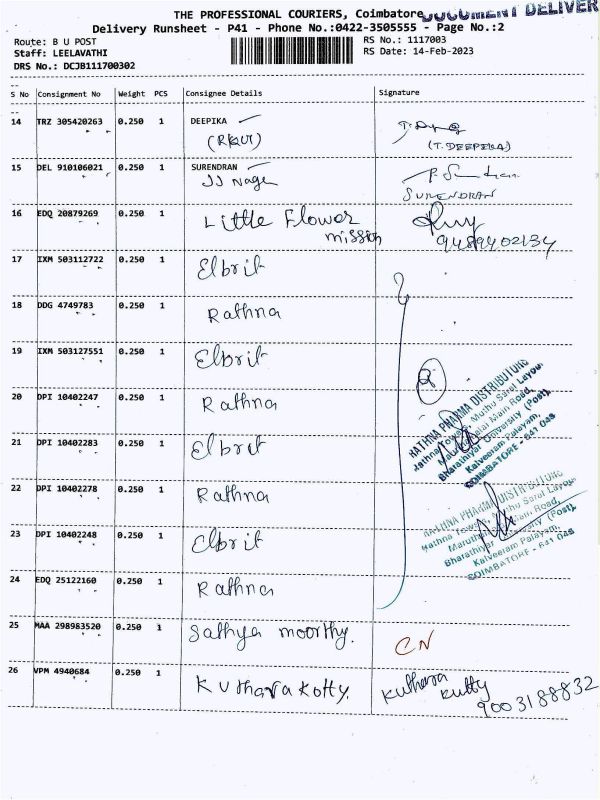 THE PROFESSIONAL COURIERS, Coimbatore
DOCUMENT DELIVER
Delivery Runsheet - P41 - Phone No.:0422-3505555 - Page No.:2
Route: B U POST
RS No.: 1117003
Staff: LEELAVATHI
RS Date: 14-Feb-2023
DRS No.: DCJB111700302
S No Consignment No Weight PCS Consignee Details Signature
14 TRZ 305420263 0.250 1 DEEPIKA
(T.DEEPIKA)
15 DEL 910106021 0.250 1 SURENDRAN
JJ Nagar
SURENDRAN
16 EDQ 20879269 0.250 1 Little Flower
mission
9489402134
17 IXM 503112722 0.250 1 Elbrit
18 DDG 4749783 0.250 1 Rathna
19 IXM 503127551 0.250 1 Elbrit
20 DPI 10402247 0.250 1 Rathna
21 DPI 10402283 0.250 1 Elbrit
22 DPI 10402278 0.250 1 Rathna
23 DPI 10402248 0.250 1 Elbrit
24 EDQ 25122160 0.250 1 Rathna
RATHNA PHARMA DISTRIBUTORS
Rathna Towers, Muthu Saral Layout,
Maruthamalai Main Road,
Bharathiyar University (Post),
Kalveeram Palayam,
COIMBATORE - 641 046
RATHNA PHARMA DISTRIBUTORS
Rathna Towers, Muthu Saral Layout,
Maruthamalai Main Road,
Bharathiyar University (Post),
Kalveeram Palayam,
COIMBATORE - 641 046
25 MAA 298983520 0.250 1 Sathya moorthy.
CN
26 VPM 4940684 0.250 1 Kuthara Kotty.
Kuthara
Kutty
9003188832